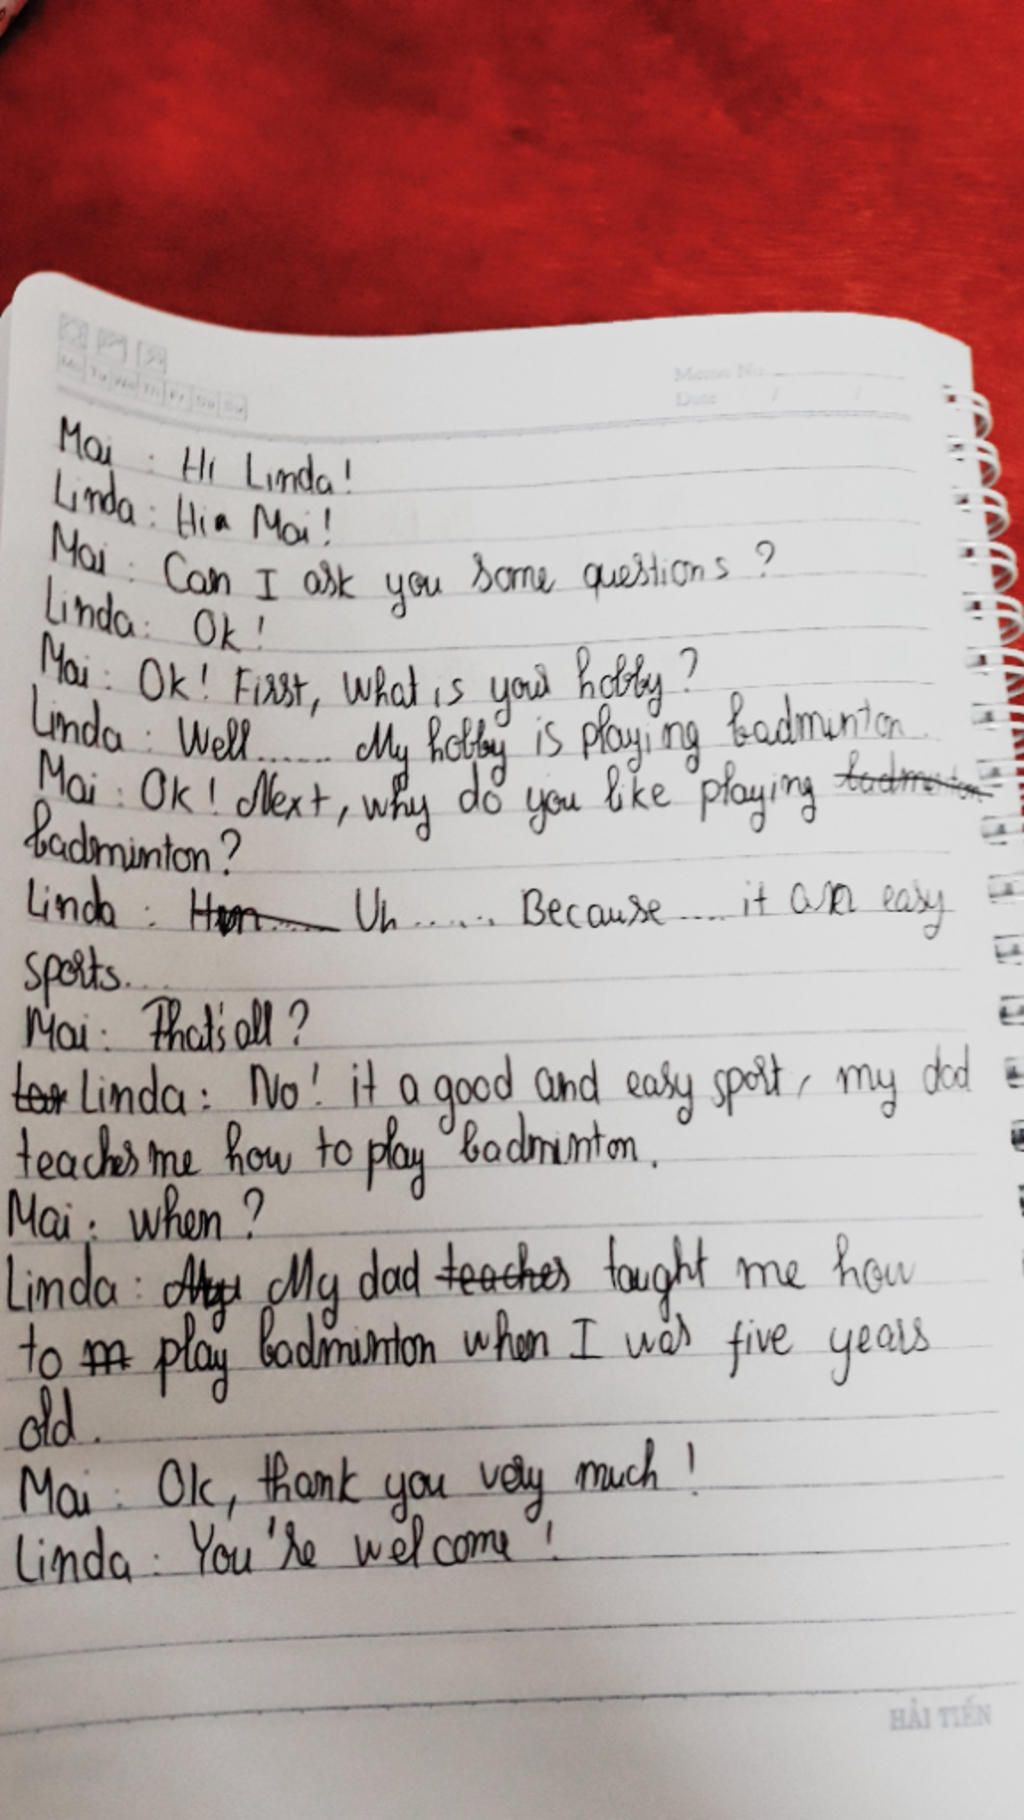 Memo No
Date / /
Mai : Hi Linda!
Linda : Hi Mai!
Mai : Can I ask you some questions ?
Linda : Ok!
Mai : Ok! First, What is your hobby?
Linda : Well...... My hobby is playing badminton.
Mai : Ok! Next, why do you like playing badminton
badminton?
Linda : Uh ...... Because .... it an easy
sports...
Mai : That's all?
Linda : No! it a good and easy sport, my dad
teaches me how to play badminton.
Mai : when?
Linda : My dad teaches taught me how
to m play badminton when I was five years
old.
Mai : Ok, thank you very much!
Linda : You're welcome!
HẢI TIẾN